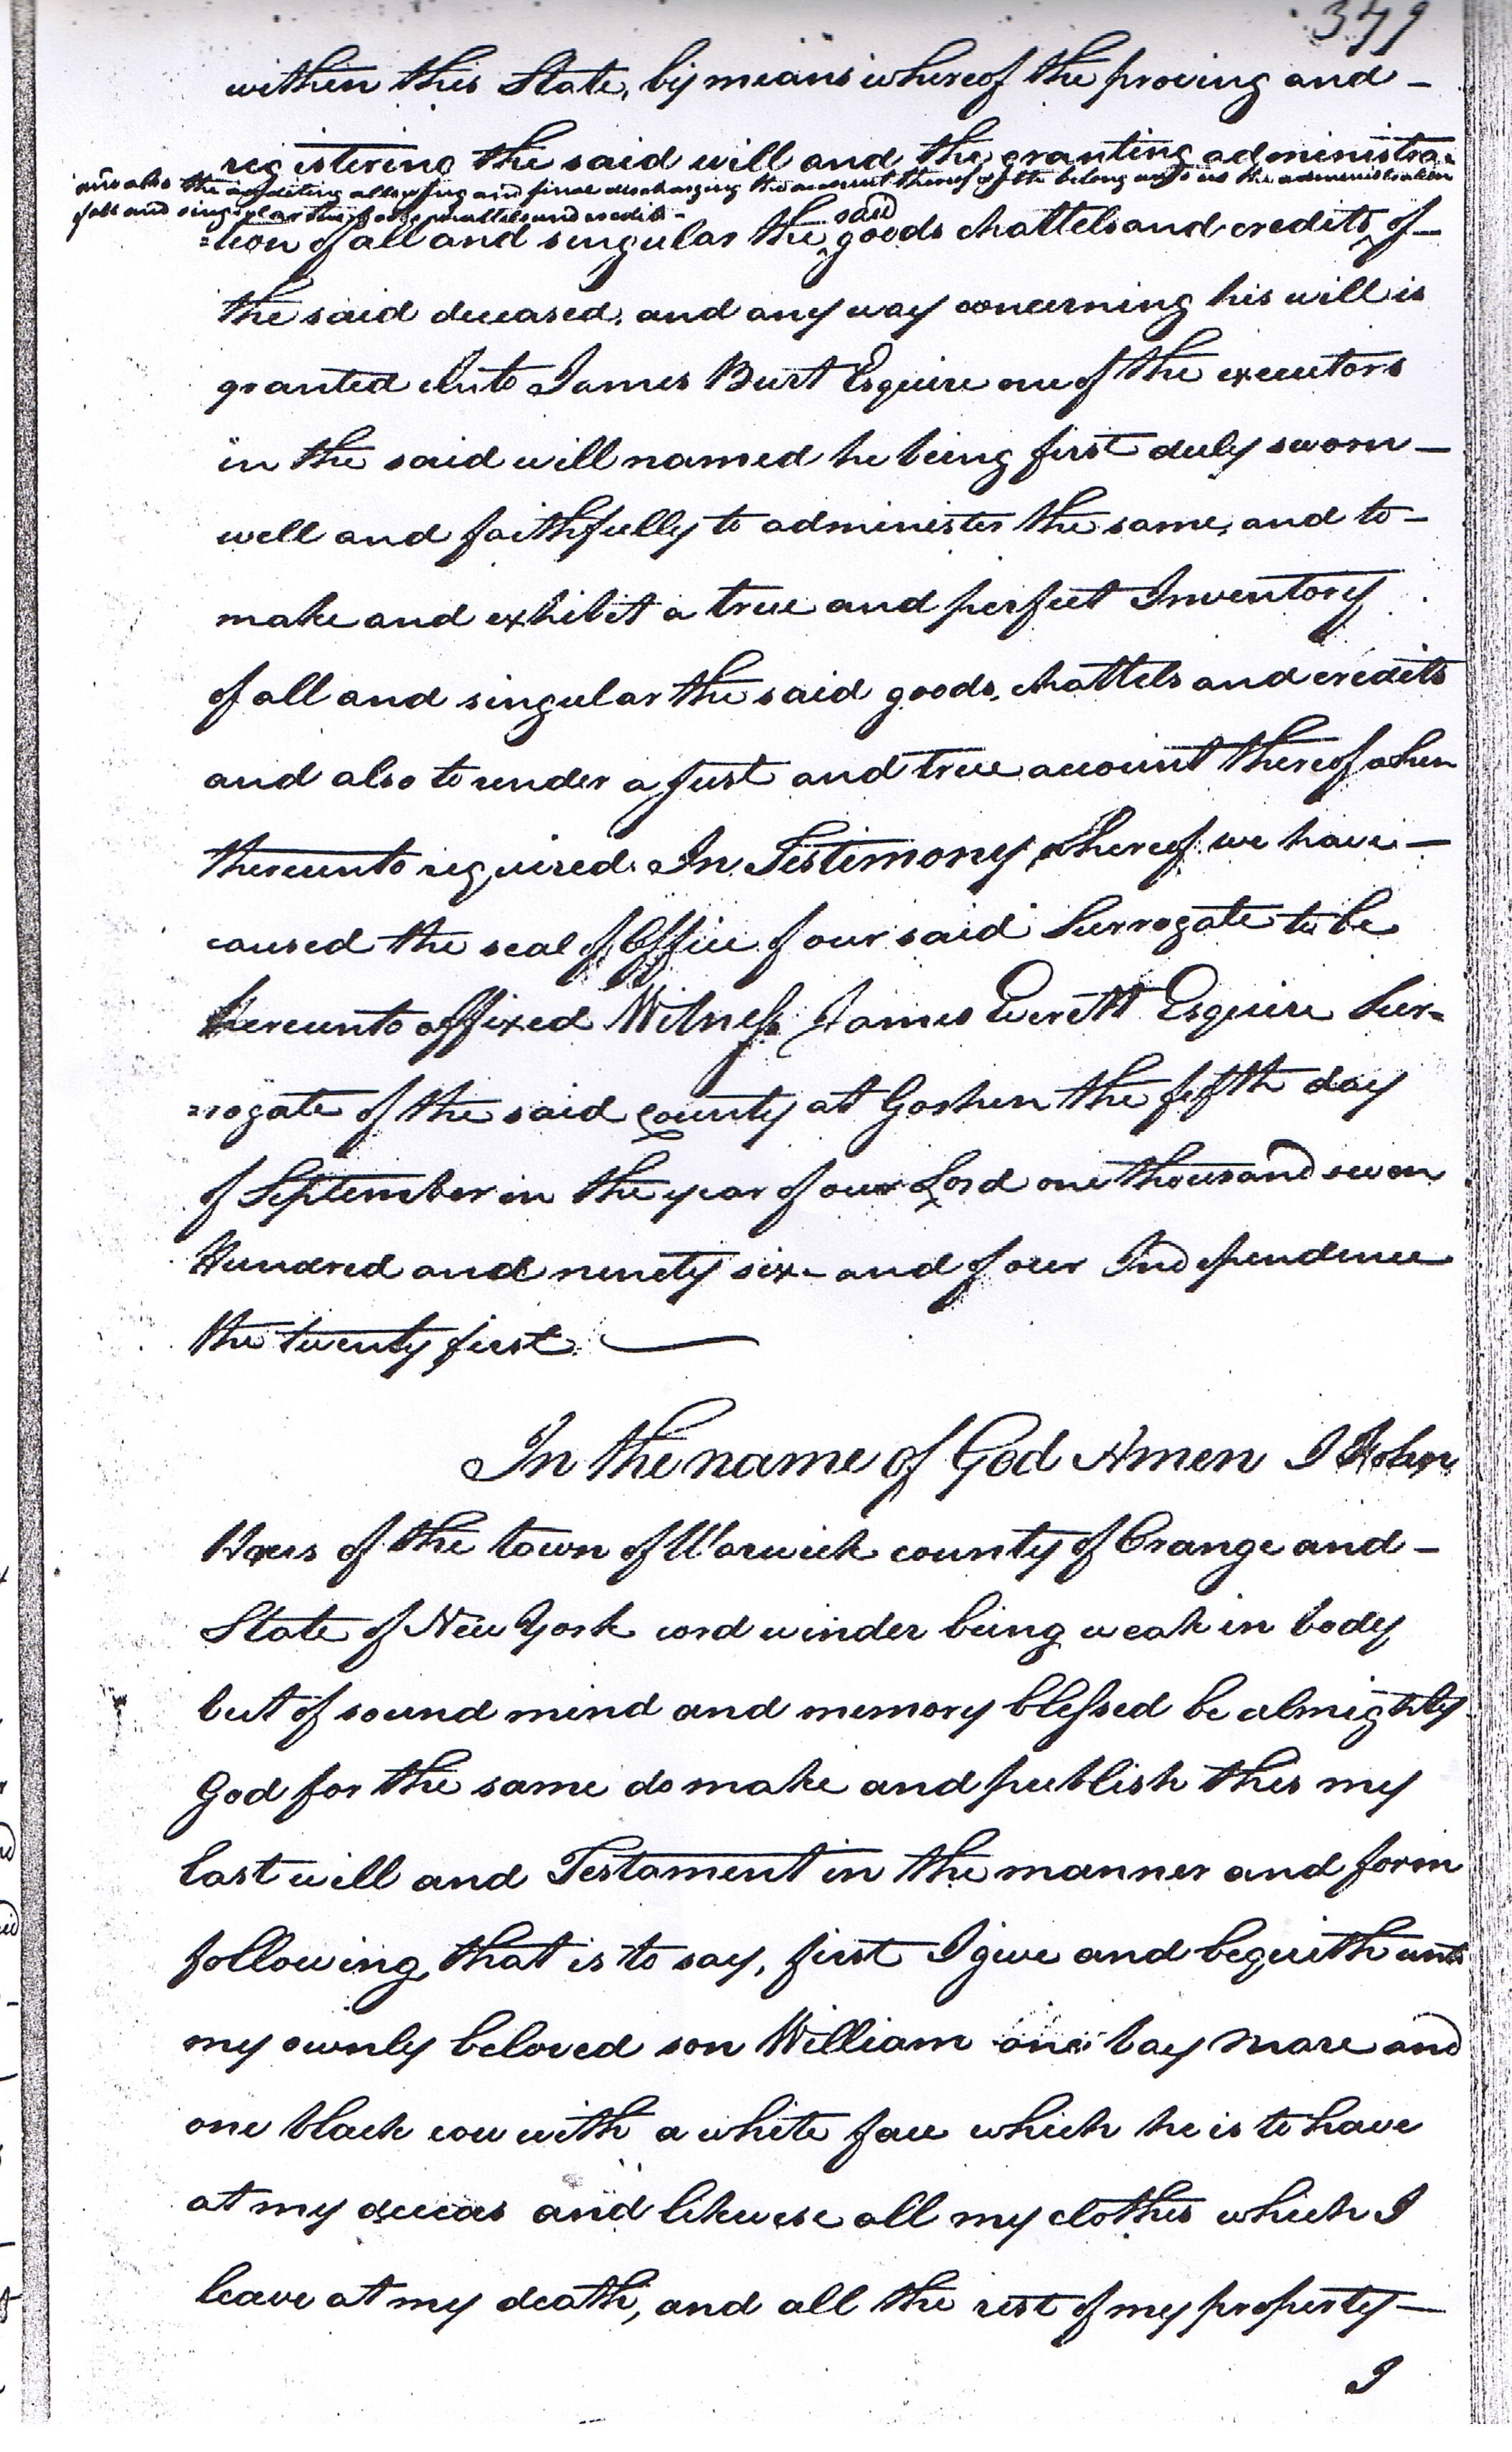 within this State, by means whereof the proving and -
registering the said will and the granting administra=
and also the auditing allowing and final discharging the account thereof doth belong unto us the administration
of all and singular the goods chattels and credits -
=tion of all and singular the said goods chattels and credits of -
the said deceased, and any way concerning his will is
granted unto James Burt Esquire one of the executors
in the said will named he being first duly sworn -
well and faithfully to administer the same, and to -
make and exhibit a true and perfect Inventory
of all and singular the said goods, chattels and credits
and also to render a just and true account thereof when
thereunto required. In Testimony whereof we have -
caused the seal of Office of our said Surrogate to be
hereunto affixed Witness James Everett Esquire Sur=
=rogate of the said county at Goshen the fifth day
of September in the year of our Lord one thousand seven
Hundred and ninety six - and of our Independence
the twenty first.
In the name of God Amen I John
of the town of Warwick county of Orange and -
State of New York cord winder being weak in body
but of sound mind and memory blessed be almighty
God for the same do make and publish this my
last will and Testament in the manner and form
following, that is to say, first I give and bequith unto
my ownly beloved son William one bay mare and
one black cow with a white face which he is to have
at my deceas and likewise all my clothes which I
leave at my death, and all the rest of my property -
I